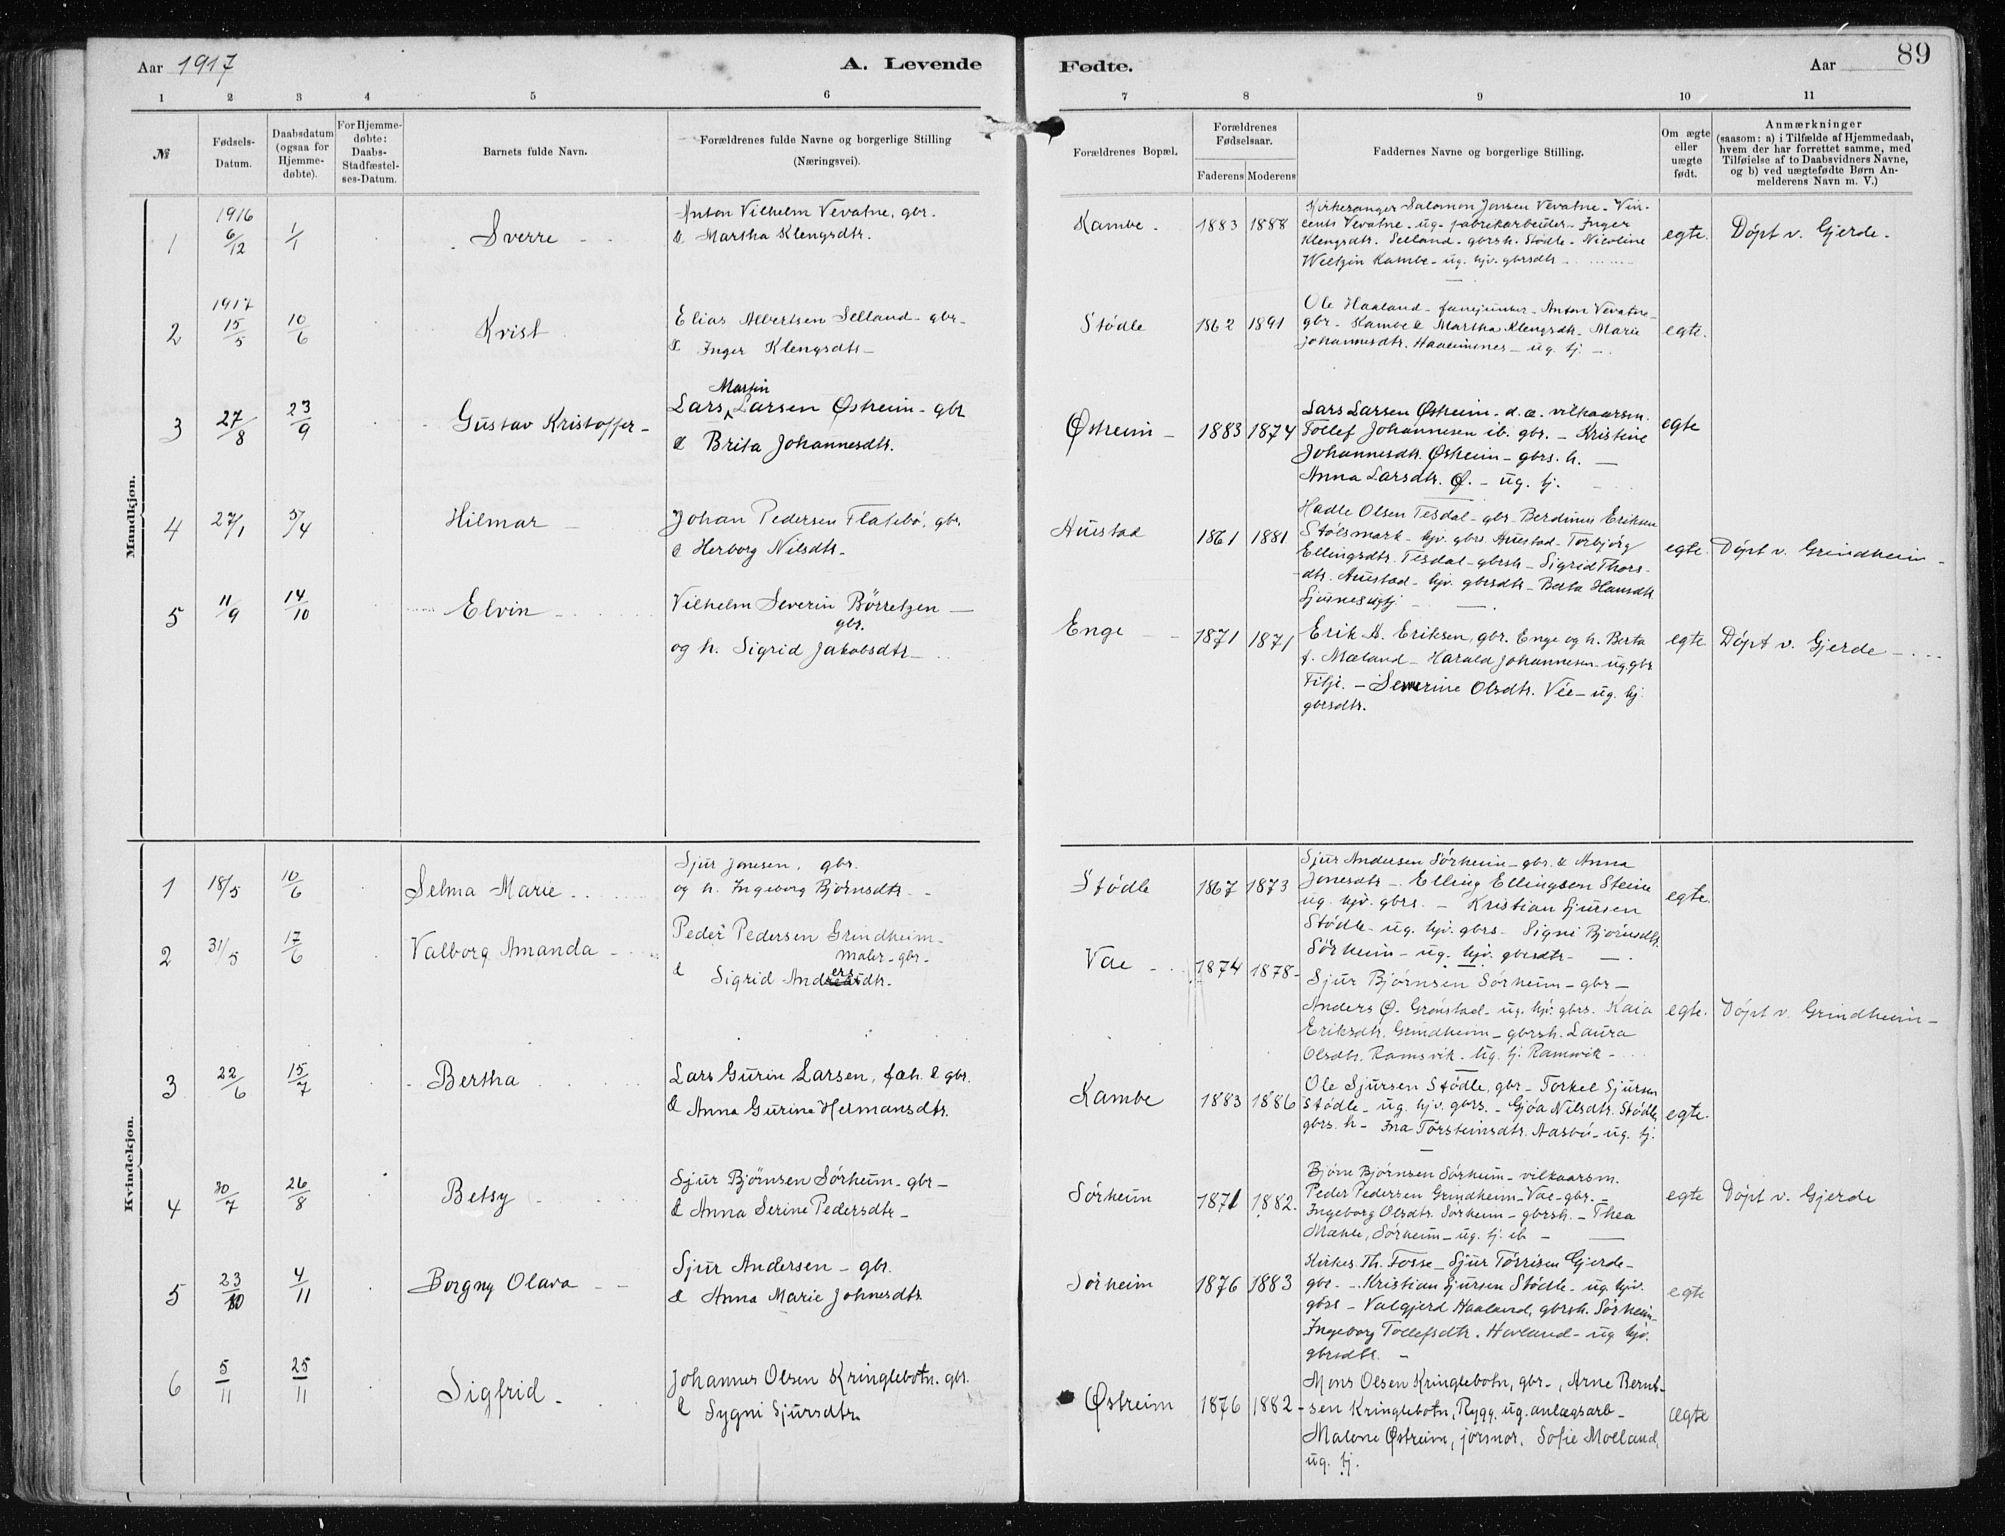 Aar 1917
A. Levende
Fødte.
Aar
89
1 2 3 4 5 6 7 8 9 10 11
№
Fødsels-
Datum.
Daabsdatum
(ogsaa for
Hjemme-
døbte).
For Hjemme-
døbte:
Daabs-
Stadfæstel-
ses-Datum.
Barnets fulde Navn.
Forældrenes fulde Navne og borgerlige Stilling
(Næringsvei).
Forældrenes Bopæl.
Forældrenes
Fødselsaar.
Faderens Moderens
Faddernes Navne og borgerlige Stilling.
Om ægte
eller
uægte
født.
Anmærkninger
(saasom: a) i Tilfælde af Hjemmedaab,
hvem der har forrettet samme, med
Tilføielse af to Daabsvidners Navne,
og b) ved uægtefødte Børn An-
melderens Navn m. V.)
Mandkjøn.
1
1916
6/12
1/1
Sverre
Anton Vilhelm Vevatne, gbr.
& Martha Klengsdtr.
Kambe.
1883 1888
Kirkesanger Salomon Jonsen Vevatne - Vin-
cents Vevatne - ug. fabrikarbeider - Inger
Klengsdtr. Selland - gbrsh. Stødle - Nicoline
Weltzin Kambe - ug. hjv. gbrsdtr
egte.
Döpt v. Gjerde.
2
1917
15/5
10/6
Krist
Elias Albertsen Selland - gbr-
& Inger Klengsdtr-
Stödle
1862 1891
Ole Haaland - fanejunker - Anton Vevatne-
gbr - Kambe & Martha Klengsdtr - Marie
Johannesdtr. - ug. tj.
egte.
3
27/8
23/9
Gustav Kristoffer -
Martin
Lars Larsen Østreim - gbr
& Brita Johannesdtr.
Østreim -
1883 1874
Lars Larsen Østreim - d.æ. vilkaarsm.
Tollef Johannesen ib. gbr. - Kristine
Johannesdtr. Østreim - gbrs. h. -
Anna Larsdtr. Ø. - ug. tj.
egte
4
27/1
5/4
Hilmar -
Johan Pedersen Flatebö, gbr.
& Herborg Nilsdtr-
Austad
1861 1881
Hadle Olsen Tesdal - gbr - Berdines Eriksen
Stölsmark - hjv. gbrs. Austad - Torbjörg
Ellingsdtr. Tesdal - gbrsh - Sigrid Thors-
-dtr. Austad - hjv. gbrsdtr - Berta Hansdtr.
egte.
Döpt v. Grindheim -
5
11/9
14/10
Elvin -
Vilhelm Severin Börretzen -
gbr.
og h. Sigrid Jakobsdtr -
Enge -
1871 1871
Erik A. Eriksen, gbr. Enge og h. Berta
f. Mæland - Harald Johannesen - ug. gbr
Tilje. - Severine Olsdtr. Vie - ug. hj.
gbrsdtr.
egte
Döpt v. Gjerde -
Kvindekjøn.
1
18/5
10/6
Selma Marie
Sjur Jonesen, gbr.
og h. Ingeborg Björnsdtr -
Stödle
1867 1873
Sjur Andersen Sörheim - gbr. & Anna
Jonesdtr - Elling Ellingsen Steine
ug. hjv. gbrs. - Kristian Sjursen
Stödle - ug. hjv. gbrs - Signi Björnsdtr.
Sörheim - ug. hjv. gbrsdtr -
egte.
2
31/5
17/6
Valborg Amanda -
Peder Pedersen Grindheim -
maler - gbr -
& Sigrid Andersdtr.
Vae -
1874 1878 -
Sjur Bjørnsen Sørheim - gbr -
Anders Ø. Grönstad - ug. hjv. gbrs. Kaia
Eriksdtr. Grindheim - gbrsh. Laura
Olsdtr. Ramsvik - ug. tj. Ramsvik -
egte.
Döpt v. Grindheim -
3
22/6
15/7
Bertha
Lars Gurin Larsen, fæh. & gbr.
& Anna Gurine Hermansdtr.
Kambe
1883 1886
Ole Sjursen Stödle, gbr - Torkel Sjursen
Stödle - ug. hjv. gbrs. - Gjöa Nilsdtr. Stödle,
gbrs. h - Ina Torsteinsdtr. Aasbö - ug. tj.
egte.
4
30/7
26/8
Betsy -
Sjur Bjørnsen Sørheim - gbr -
& Anna Serine Pedersdtr -
Sørheim
1871 1882.
Bjöne Björnsen Sørheim - vilkaarsm.
Peder Pedersen Grindheim - Vae - gbr. -
Ingeborg Olsdtr. Sørheim - gbrsh. - Thea
Mæhle, Sørheim - ug. tj. ib -
egte
Döpt v. Gjerde
5
23/10
4/11
Borgny Olava -
Sjur Andersen - gbr.
& Anna Marie Johnesdtr
Sørheim
1876 1883
Kirkes. Th. Fosse - Sjur Törrisen Gjerde -
gbr. - Kristian Sjursen Stödle - ug. hjv.
gbrs - Valgjerd Haaland, gbrsh. Sørheim -
Ingeborg Tollefsdtr. Hovland - ug hjv.
gbrsdtr. -
egte
6
5/11
25/11
Sigfrid.
Johannes Olsen Kringlebotn. gbr.
& Sygni Sjursdtr.
Østreim
1876 1882 -
Mons Olsen Kringlebotn, gbr -, Arne Bernt-
sen Kringlebotn, Rygg. ug. anlægsarb -
Malene Østreim, jorsmor. Sofie Moeland,
ug. tj.
ægte